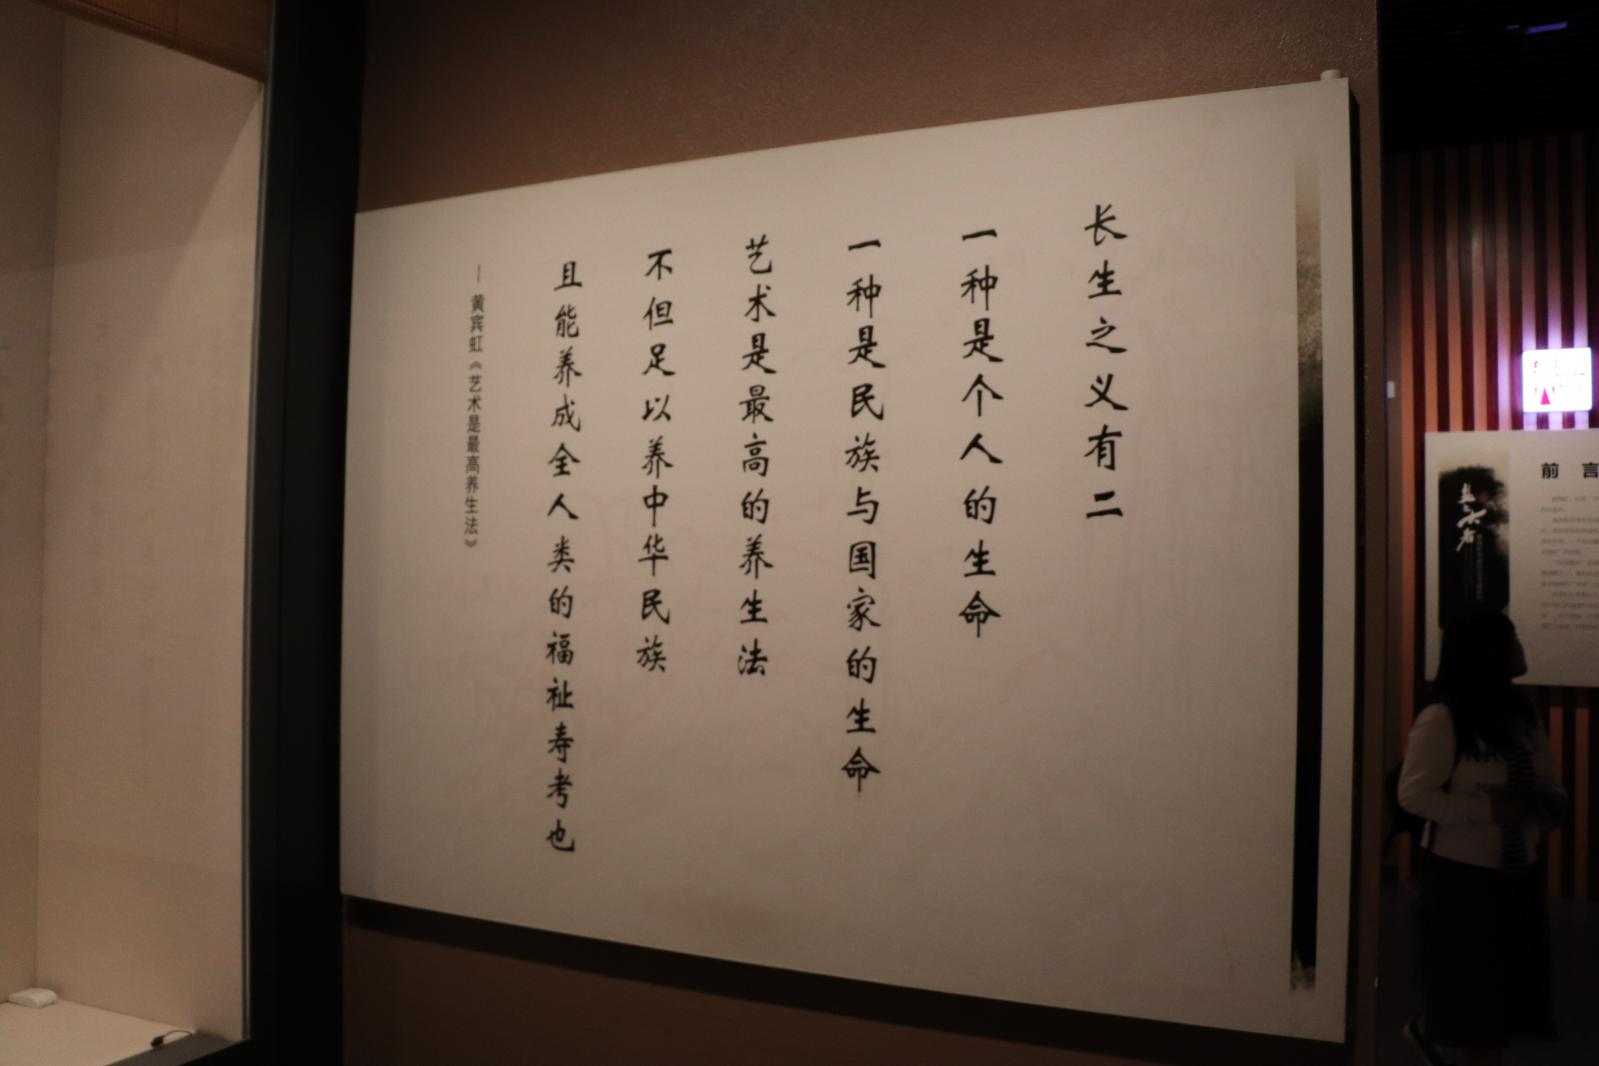 长生之义有二
一种是个人的生命
一种是民族与国家的生命
艺术是最高的养生法
不但足以养中华民族
且能养成全人类的福祉寿考也
— 黄宾虹《艺术是最高养生法》
前言